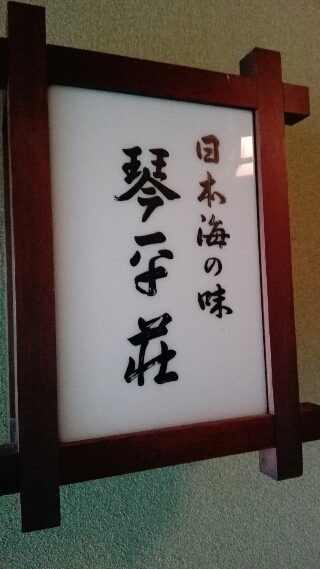 日本海の味
琴平荘